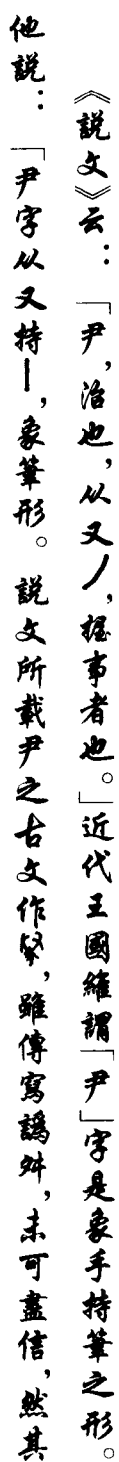 《說文》云：「尹，治也，从又丿，握事者也。」近代王國維謂「尹」字是象手持筆之形。
他說：「尹字从又持丨，象筆形。說文所載尹之古文作𢇍，雖傳寫譌舛，未可盡信，然其